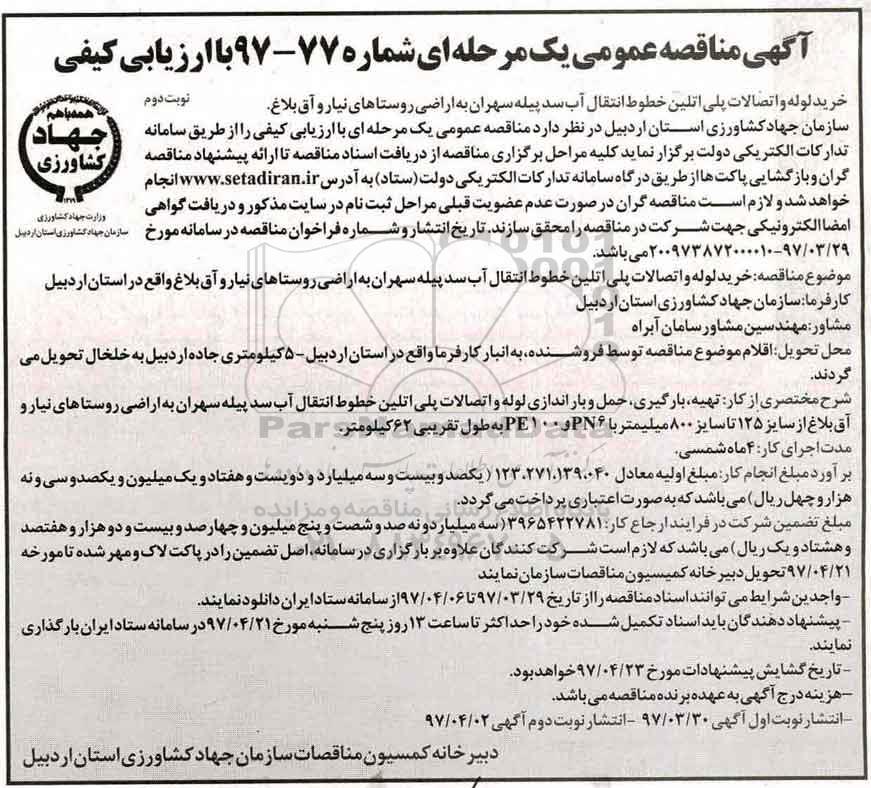 آگهی مناقصه عمومی یک مرحله ای شماره ۷۷-۹۷ با ارزیابی کیفی
نوبت دوم
خرید لوله و اتصالات پلی اتلین خطوط انتقال آب سد پیله سهران به اراضی روستاهای نیار و آق بلاغ.
سازمان جهاد کشاورزی استان اردبیل در نظر دارد مناقصه عمومی یک مرحله ای با ارزیابی کیفی را از طریق سامانه
تدارکات الکتریکی دولت برگزار نماید کلیه مراحل برگزاری مناقصه از دریافت اسناد مناقصه تا ارائه پیشنهاد مناقصه
گران و بازگشایی پاکت ها از طریق درگاه سامانه تدارکات الکتریکی دولت (ستاد) به آدرس www.setadiran.ir انجام
خواهد شد و لازم است مناقصه گران در صورت عدم عضویت قبلی مراحل ثبت نام در سایت مذکور و دریافت گواهی
امضا الکترونیکی جهت شرکت در مناقصه را محقق سازند. تاریخ انتشار و شماره فراخوان مناقصه در سامانه مورخ
۹۷/۰۳/۲۹-۲۰۰۹۷۳۸۷۲۰۰۰۰۱۰ می باشد.
همه با هم
جهاد
کشاورزی
وزارت جهاد کشاورزی
سازمان جهاد کشاورزی استان اردبیل
موضوع مناقصه: خرید لوله و اتصالات پلی اتلین خطوط انتقال آب سد پیله سهران به اراضی روستاهای نیار و آق بلاغ واقع در استان اردبیل
کارفرما: سازمان جهاد کشاورزی استان اردبیل
مشاور: مهندسین مشاور سامان آبراه
محل تحویل: اقلام موضوع مناقصه توسط فروشنده، به انبار کارفرما واقع در استان اردبیل -۵ کیلومتری جاده اردبیل به خلخال تحویل می
گردند.
شرح مختصری از کار: تهیه، بارگیری، حمل و باراندازی لوله و اتصالات پلی اتلین خطوط انتقال آب سد پیله سهران به اراضی روستاهای نیار و
آق بلاغ از سایز ۱۲۵ تا سایز ۸۰۰ میلیمتر با PN۶ و PE۱۰۰ به طول تقریبی ۶۲ کیلومتر.
مدت اجرای کار: ۴ ماه شمسی.
بر آورد مبلغ انجام کار: مبلغ اولیه معادل ۱۲۳.۲۷۱.۱۳۹.۰۴۰ (یکصد و بیست و سه میلیارد و دویست و هفتاد و یک میلیون و یکصد و سی و نه
هزار و چهل ریال) می باشد که به صورت اعتباری پرداخت می گردد.
مبلغ تضمین شرکت در فرایند ارجاع کار: ۳۹۶۵۴۲۲۷۸۱ (سه میلیارد و نه صد و شصت و پنج میلیون و چهارصد و بیست و دو هزار و هفتصد
و هشتاد و یک ریال) می باشد که لازم است شرکت کنندگان علاوه بر بارگزاری در سامانه، اصل تضمین را در پاکت لاک و مهر شده تا مورخه
۹۷/۰۴/۲۱ تحویل دبیرخانه کمیسیون مناقصات سازمان نمایند
-واجدین شرایط می توانند اسناد مناقصه را از تاریخ ۹۷/۰۳/۲۹ تا ۹۷/۰۴/۰۶ از سامانه ستاد ایران دانلود نمایند.
-پیشنهاد دهندگان باید اسناد تکمیل شده خود را حداکثر تا ساعت ۱۳ روز پنج شنبه مورخ ۹۷/۰۴/۲۱ در سامانه ستاد ایران بارگذاری
نمایند.
-تاریخ گشایش پیشنهادات مورخ ۹۷/۰۴/۲۳ خواهد بود.
-هزینه درج آگهی به عهده برنده مناقصه می باشد.
-انتشار نوبت اول آگهی ۹۷/۰۳/۳۰ -انتشار نوبت دوم آگهی ۹۷/۰۴/۰۲
دبیر خانه کمسیون مناقصات سازمان جهاد کشاورزی استان اردبیل
ParsNamadData
پایگاه اطلاع رسانی مناقصه و مزایده